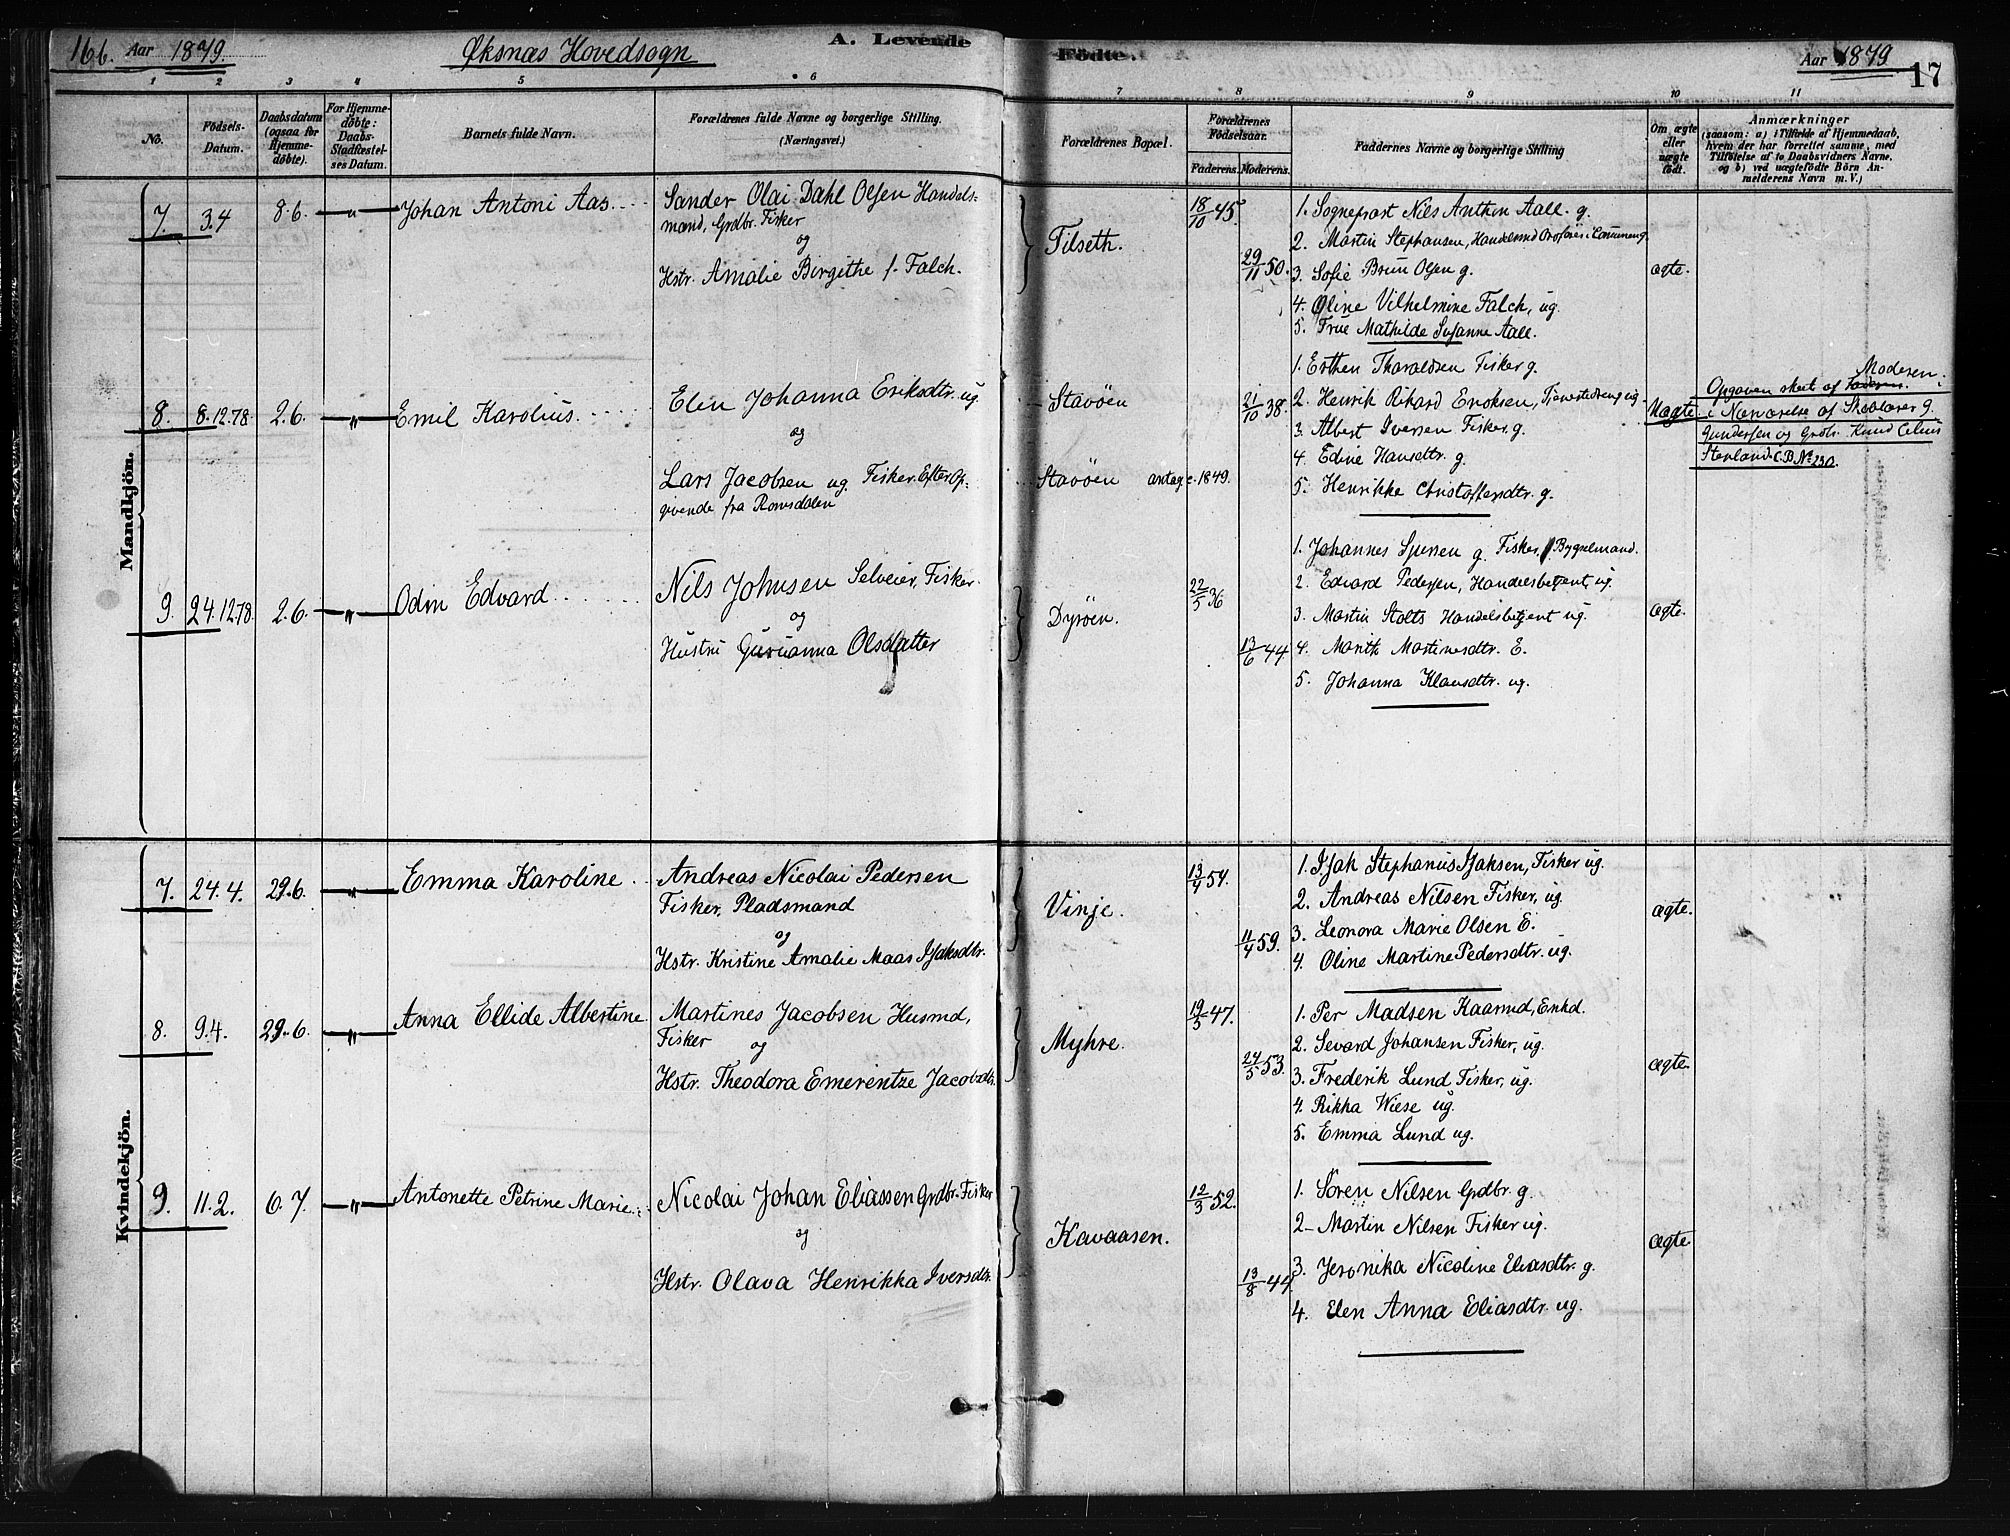 16b. Aar 1879. Øksnæs Hovedsogn A. Levende
Födte. Aar 1879
17
1 2 3 4 5 6
7 8 9 10 11
No.
Födsels-
Datum.
Daabsdatum
(ogsaa for
Hjemme-
döbte).
For Hjemme-
döbte:
Daabs-
Stadfæstel-
ses Datum.
Barnets fulde Navn.
Forældrenes fulde Navne og borgerlige Stilling.
(Næringsvei.)
Forældrenes Bopæl.
Forældrenes
Födselsaar.
Faderens. Moderens.
Faddernes Navne og borgerlige Stilling
Om ægte
eller
uægte
födt.
Anmærkninger
(saasom: a) i Tilfælde af Hjemmedaab,
hvem der har forrettet samme, med
Tilföielse af to Daabsvidners Navne,
og b) ved uægtefödte Börn An-
melderens Navn m. V.)
Mandkjön.
7. 3.4 8.6. — " — Johan Antoni Aas
Sander Olai Dahl Olsen Handels-
mand, Grdbr. Fisker
og
Hstr. Amalie Birgithe f. Falch.
Tilseth.
18/10 45.
29/11 50.
1. Sogneprast Nils Anthon Aall. g.
2. Martin Stephansen, Handelsmd
3. Sofie Bruu Olsen g.
4. Oline Vilhelmine Falch, ug.
5. Frue Mathilde Susanne Aall.
ægte.
8. 8.12.78. 2.6. — " — Emil Karolius
Elen Johanna Eriksdtr. ug.
og
Lars Jacobsen ug. Fisker. Efter Op-
givende fra Romsdalen
Stavöen
Stavöen antag. 1849.
21/10 38.
1. Erthen Tharaldsen Fisker g.
2. Henrik Rikard Enoksen, Tjenestedreng ug.
3. Albert Iversen Fisker. g.
4. Edine Hansdtr. g.
5. Henrikke Christoffersdtr. g.
Uægte
Moderen
Opgaven skeet af
i Nærværelse af Skolelærer G.
Gundersen og Grdbr. Knud Celius
Stenland. C.B. No 230.
9. 24.12.78. 2.6. — " — Odin Edvard
Nils Johnsen Selveier, Fisker.
og
Hustru Gurianna Olsdatter
Dyröen.
22/5 36
13/6 44
1. Johannes Sjursen g. Fisker, Bygselmand.
2. Edvard Pedersen, Handelsbetjent ug.
3. Martin Stolts Handelsbetjent ug.
4. Marith Martinesdtr. E.
5. Johanna Klausdtr. ug.
ægte.
Kvindekjön.
7. 24.4. 29.6. — " — Emma Karoline
Andreas Nicolai Pedersen
Fisker, Pladsmand
og
Hstr. Kristine Amalie Maas Isaksdtr.
Vinje.
13/4 54.
11/4 59.
1. Isak Stephanus Isaksen, Fisker ug.
2. Andreas Nilsen Fisker, ug.
3. Leonora Marie Olsen E.
4. Oline Martine Pedersdtr. ug.
ægte.
8. 9.4. 29.6. — " — Anna Ellide Albertine
Martines Jacobsen Husmd,
Fisker
og
Hstr. Theodora Emerentze Jacobsdtr.
Myhre.
19/5 47.
24/5 53.
1. Per Madsen Kaarmd, Enkd.
2. Sevard Johansen Fisker, ug.
3. Frederik Lund Fisker, ug.
4. Rikka Wiese ug.
5. Emma Lund ug.
ægte.
9. 11.2. 6.7. — " — Antonette Petrine Marie
Nicolai Johan Eliassen Grdbr. Fisker
og
Hstr. Olava Henrikka Iversdtr.
Kavaasen.
12/3 52.
13/8 44.
1. Sören Nilsen Grdbr. g.
2. Martin Nilsen Fisker ug.
3. Jeronika Nicoline Eliasdtr. g.
4. Elen Anna Eliasdtr. ug.
ægte.